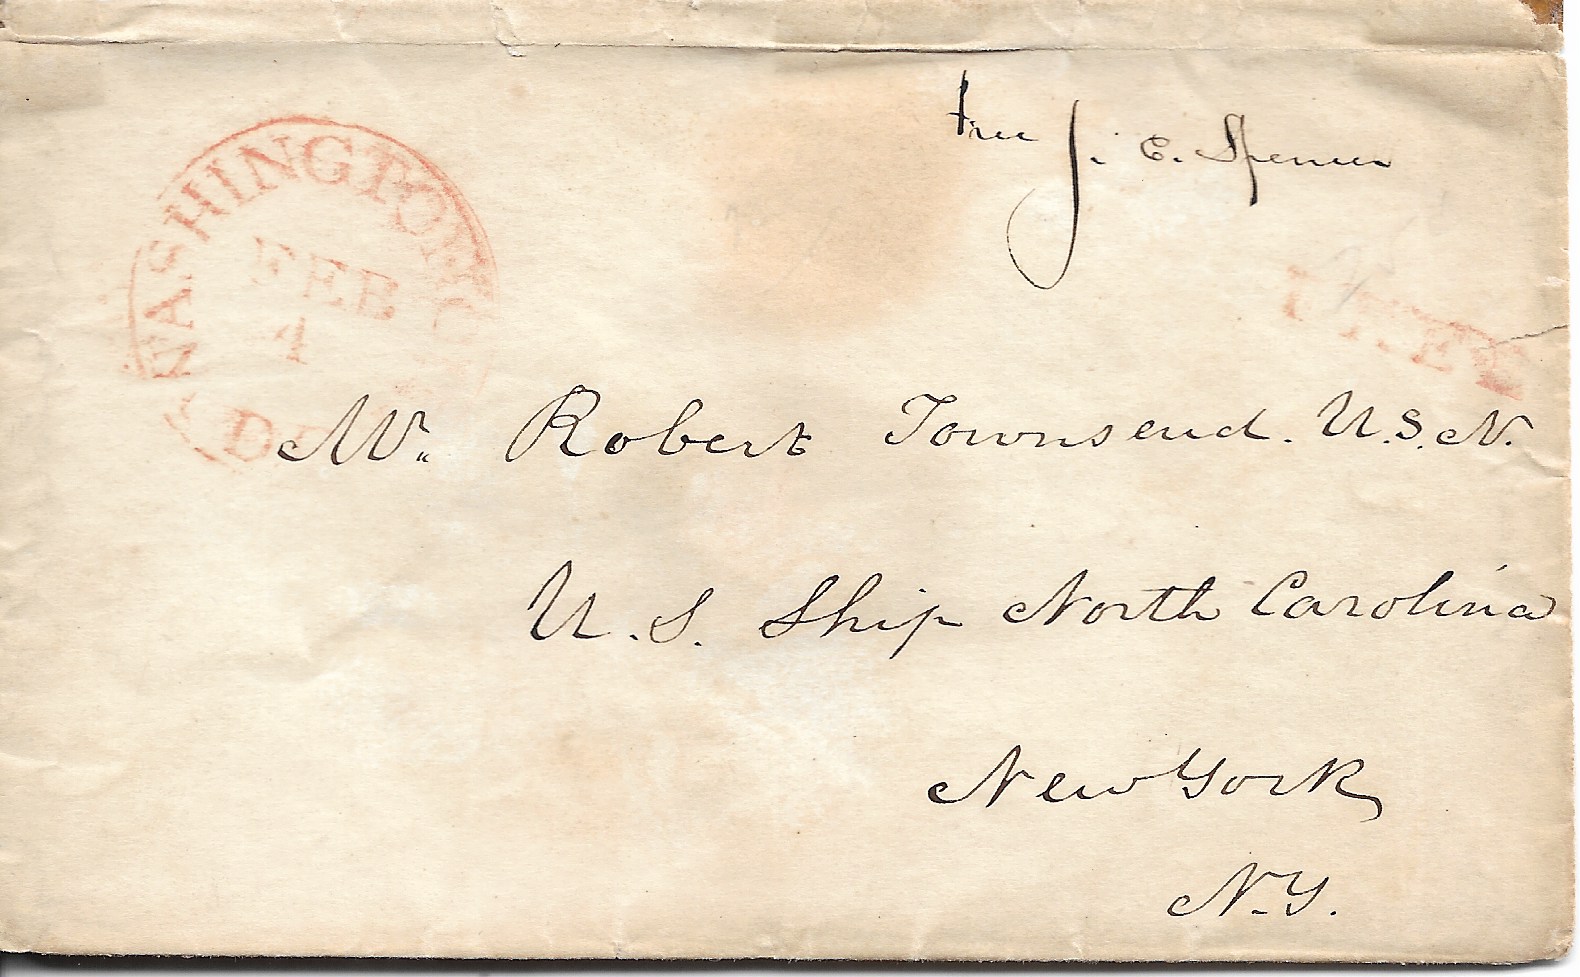 Free J. C. Spencer
WASHINGTON CITY
FEB
4
D
FREE
Mr. Robert Townsend. U.S.N.
U. S. Ship North Carolina
New York
N.Y.